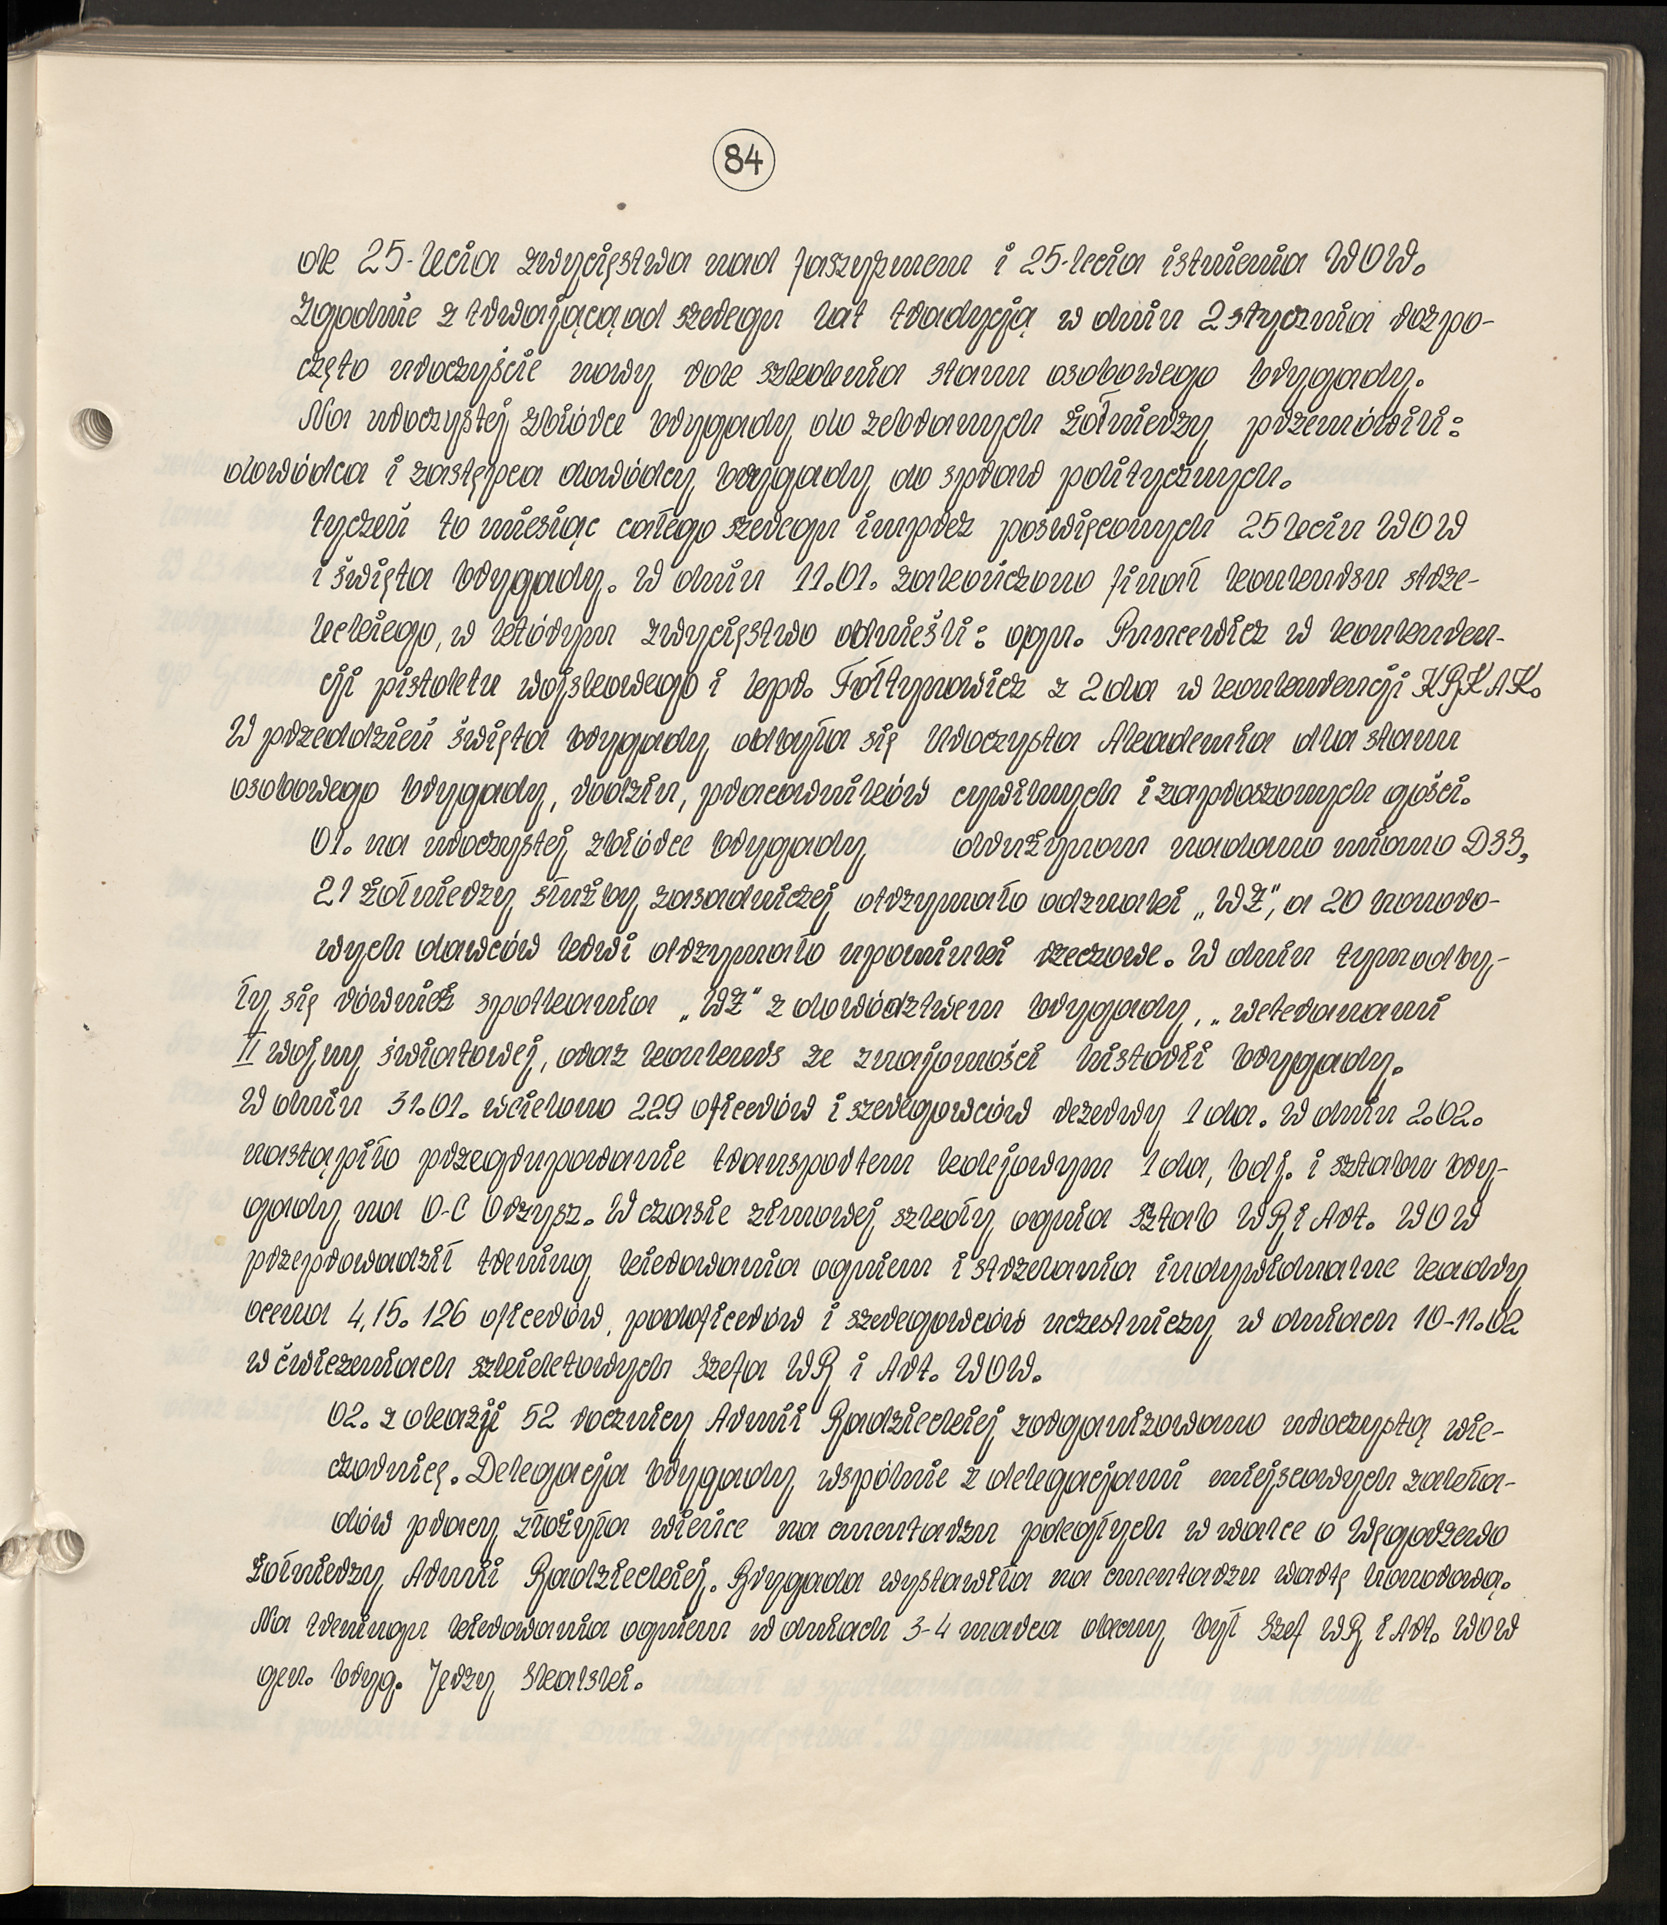 84
ok 25-lecia zwycięstwa nad faszyzmem i 25-lecia istnienia WOW.
Zgodnie z trwającą od szeregu lat tradycją w dniu 2 stycznia rozpo-
częto uroczyście nowy rok szkolenia stanu osobowego brygady.
Na uroczystej zbiórce brygady do zebranych żołnierzy przemówili:
dowódca i zastępca dowódcy brygady do spraw politycznych.
tyczeń to miesiąc całego szeregu imprez poświęconych 25 leciu WOW
i święta brygady. W dniu 11.01. zakończono finał konkursu strze-
leckiego, w którym zwycięstwo odnieśli: ogn. Puncewicz w konkuren-
cji pistoletu wojskowego i kpr. Fołtynowicz z 2da w konkurencji KBKAK.
W przeddzień święta brygady odbyła się Uroczysta Akademia dla stanu
osobowego brygady, rodzin, pracowników cywilnych i zaproszonych gości.
01. na uroczystej zbiórce brygady drużynom nadano miano DSS,
21 żołnierzy służby zasadniczej otrzymało odznaki „WZ", a 20 honoro-
wych dawców krwi otrzymało upominki rzeczowe. W dniu tym odby-
ły się również spotkania „WZ" z dowództwem brygady, „weteranami
II wojny światowej, oraz konkurs ze znajomości historii brygady.
W dniu 31.01. wcielono 229 oficerów i szeregowców rezerwy 1 da. W dniu 2.02.
nastąpiło przegrupowanie transportem kolejowym 1 da, bdj. i sztabu bry-
gady na O-C Orzysz. W czasie zimowej szkoły ognia Sztab WR i Art. WOW
przeprowadził trening kierowania ogniem i strzelania indywidualne kadry
ocena 4,15. 126 oficerów, podoficerów i szeregowców uczestniczy w dniach 10-11.02
w ćwiczeniach szkieletowych Szefa WR i Art. WOW.
02. z okazji 52 rocznicy Armii Radzieckiej zorganizowano uroczystą wie-
czornicę. Delegacja brygady wspólnie z delegacjami miejscowych zakła-
dów pracy złożyła wieńce na cmentarzu poległych w walce o Węgorzewo
żołnierzy Armii Radzieckiej. Brygada wystawiła na cmentarzu wartę honorową.
Na treningu kierowania ogniem w dniach 3-4 marca obecny był Szef WR i Art. WOW
gen. bryg. Jerzy Skalski.